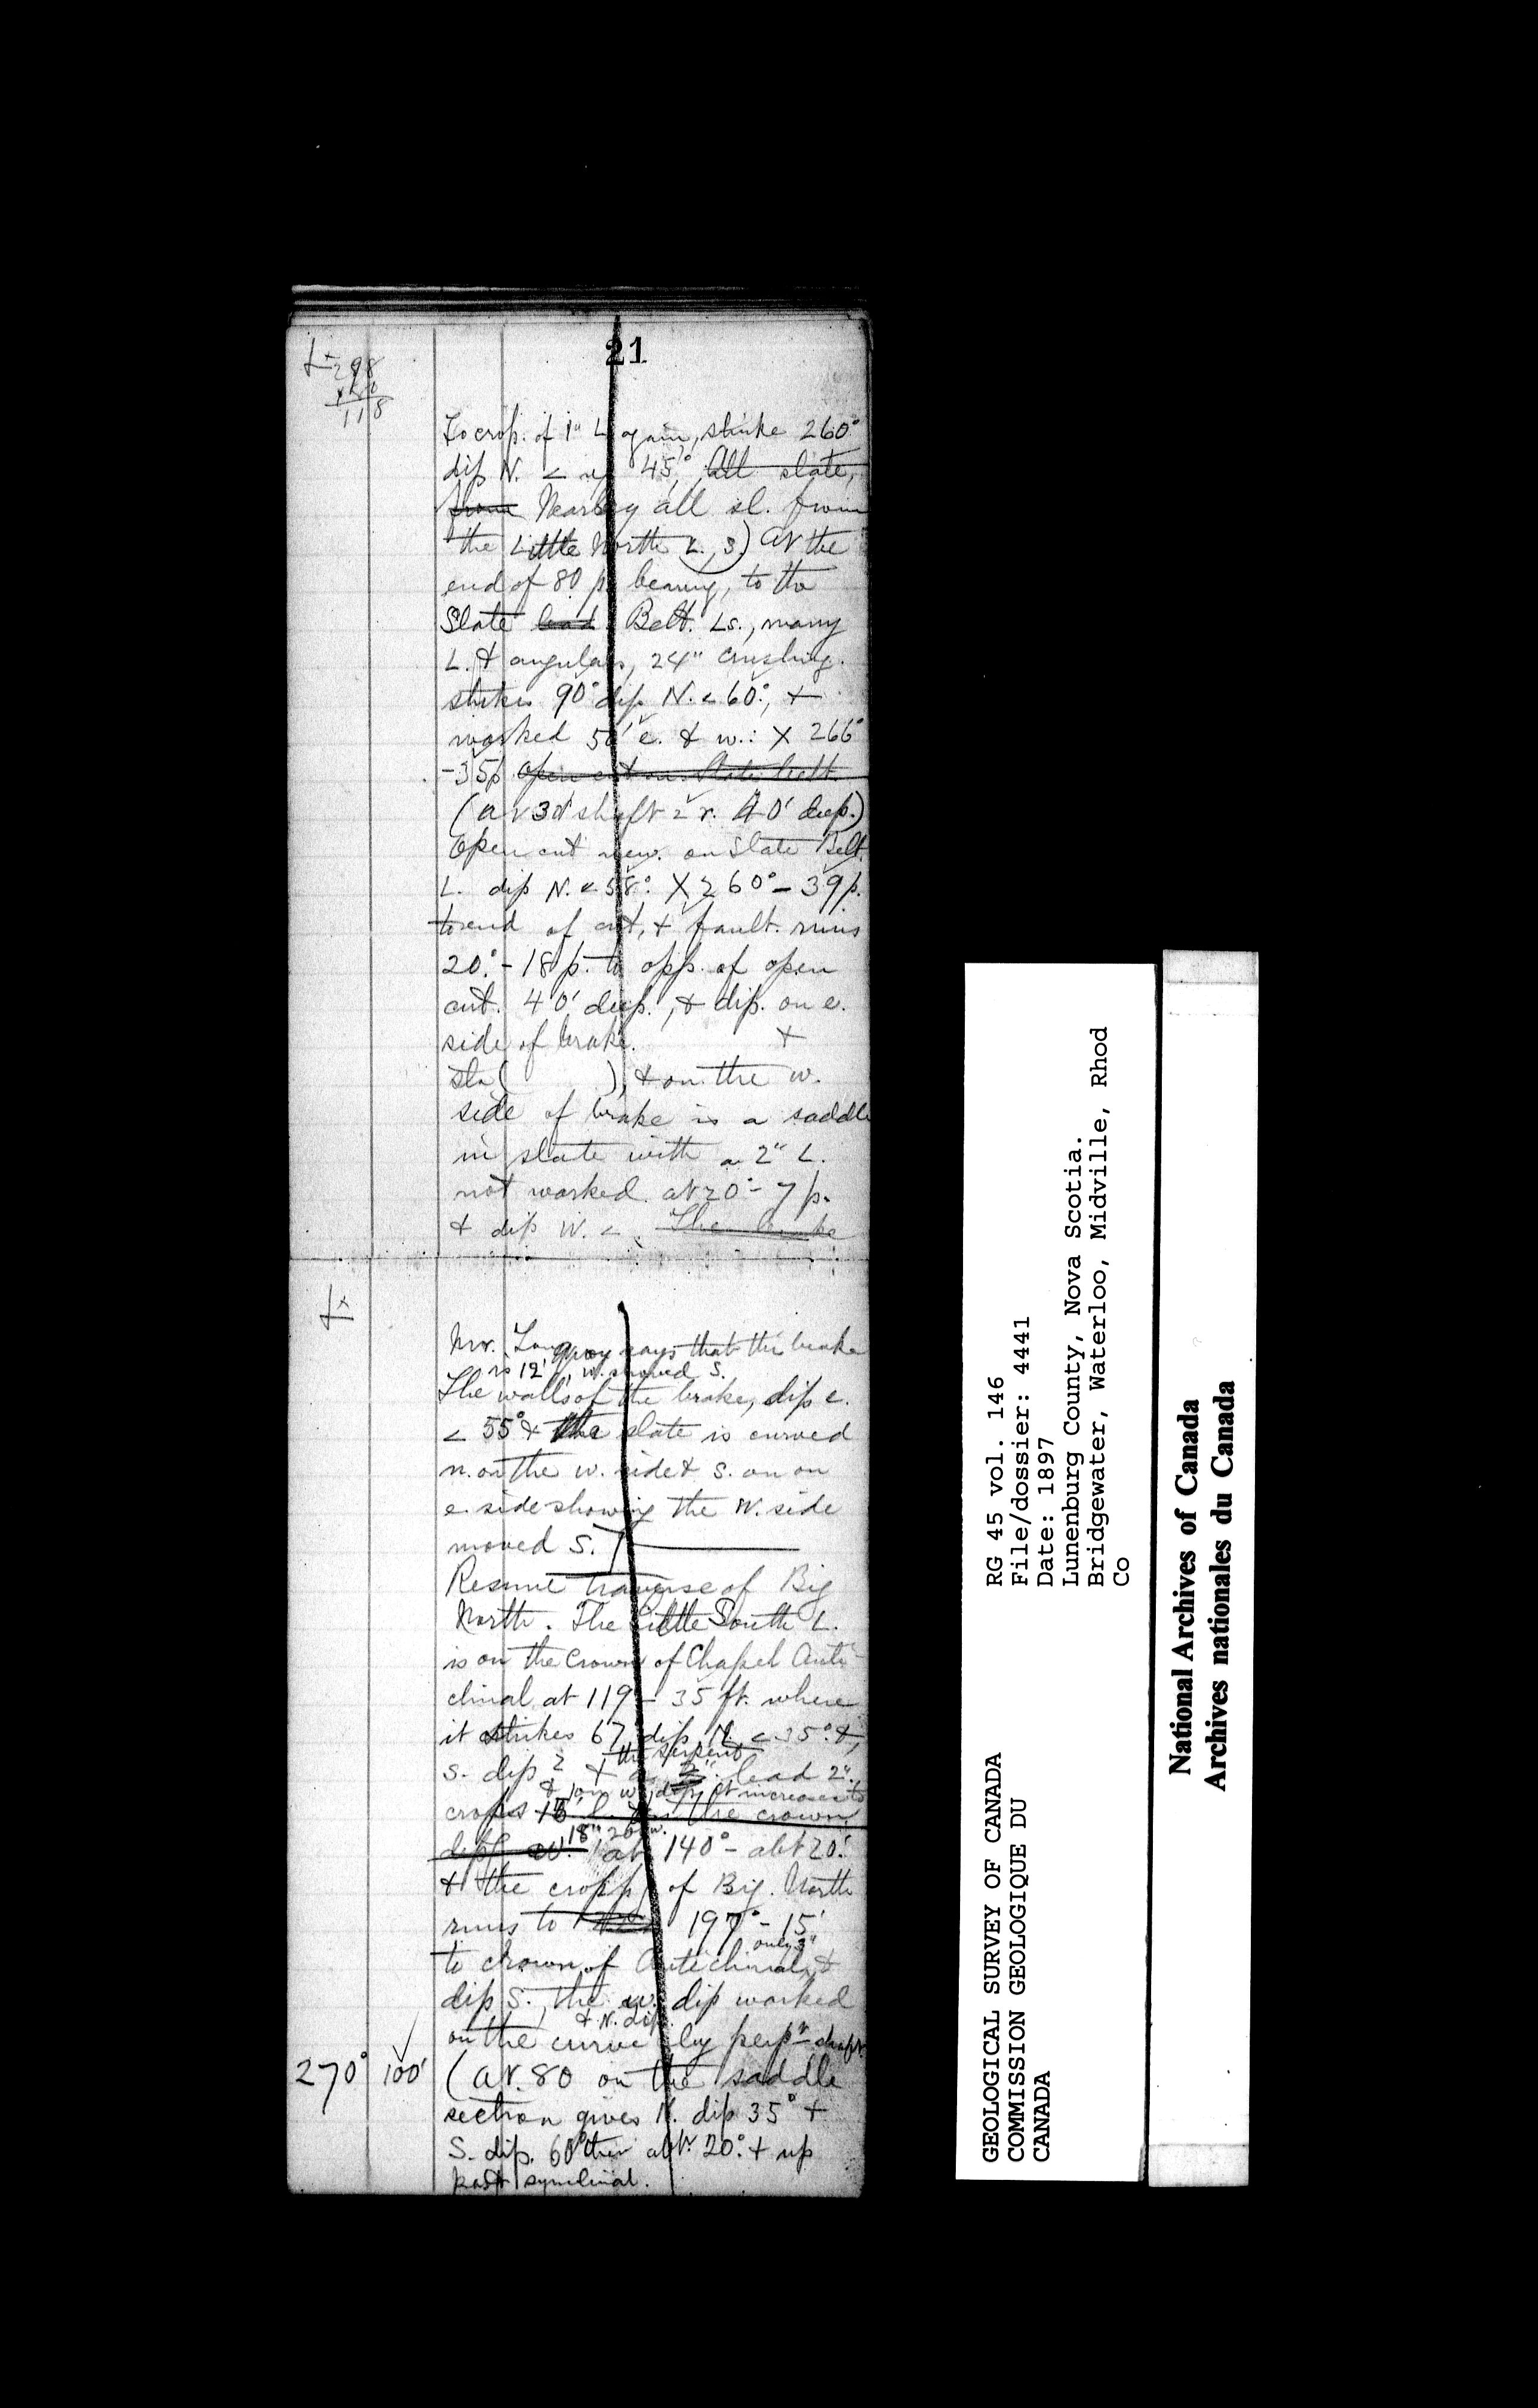 21
298
118
To crop. of 1" L. again, strike 260°
dip N. < 45°, All slate,
from Nearby all sl. from
the Little North L., S.) At the
end of 80 p. bearing, to the
Slate lead Belt. Ls., many
L. & angulars, 24" crushing.
strikes 90° dip N. < 60°, +
worked 50' e. & w.: X 266°
-35p open cut on Slate belt
(at 3d shaft 2 r. 40' deep.)
Open cut new. on Slate Belt.
L. dip N. < 58°. X 260° - 39p.
to end of cut, & fault. runs
20° - 18 p. to opp. of open
cut. 40' deep., & dip. on e.
side of brake. +
sta ( ), & on the w.
side of brake is a saddle
in slate with a 2" L.
not worked at 20° - 7 p.
& dip W. < . The brake
Mr. says that the brake
is 12', w. moved S.
The walls of the brake, dip e.
< 55° & the slate is curved
n. on the w. side & S. on on
e. side showing the W. side
moved S.)
Resume traverse of Big
North. The Little South L.
is on the Crown of Chapel Anti-
clinal at 119° - 35 ft. where
it strikes 67° dip N. < 35° &,
the serpent
S. dip ? & a 2" lead 2"
& w. dip, it increases to
crops 15 the crown
18", 26 w.
dip w. at 140° - abt 20'.
& the cropp. of Big. North
runs to 197° - 15'
only 3"
to crown of Anticlinal, &
dip S., the w. dip worked
& N. dip.
on the curve by perpr shaft.
270° 100' (at 80 on the saddle
section gives N. dip 35° +
S. dip. 60° then abt. 20°. & up
past synclinal.
GEOLOGICAL SURVEY OF CANADA
COMMISSION GEOLOGIQUE DU
CANADA
RG 45 vol. 146
File/dossier: 4441
Date: 1897
Lunenburg County, Nova Scotia.
Bridgewater, Waterloo, Midville, Rhod
Co
National Archives of Canada
Archives nationales du Canada